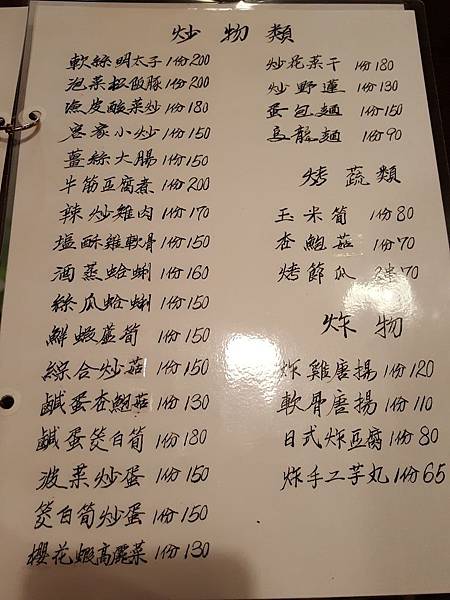 炒物類
軟絲明太子 1份200
泡菜松阪豚 1份200
魚皮酸菜炒 1份180
客家小炒 1份150
薑絲大腸 1份150
牛筋豆腐煮 1份200
辣炒雞肉 1份170
塩酥雞軟骨 1份150
酒蒸蛤蜊 1份160
絲瓜蛤蜊 1份150
鮮蝦蘆筍 1份150
綜合炒菇 1份150
鹹蛋杏鮑菇 1份130
鹹蛋筊白筍 1份180
菠菜炒蛋 1份150
筊白筍炒蛋 1份150
櫻花蝦高麗菜 1份130
炒花菜干 1份180
炒野蓮 1份130
蛋包麵 1份150
烏龍麵 1份90
烤蔬類
玉米筍 1份80
杏鮑菇 1份70
烤節瓜 2串70
炸物
炸雞唐揚 1份120
軟骨唐揚 1份110
日式炸豆腐 1份80
炸手工芋丸 1份65